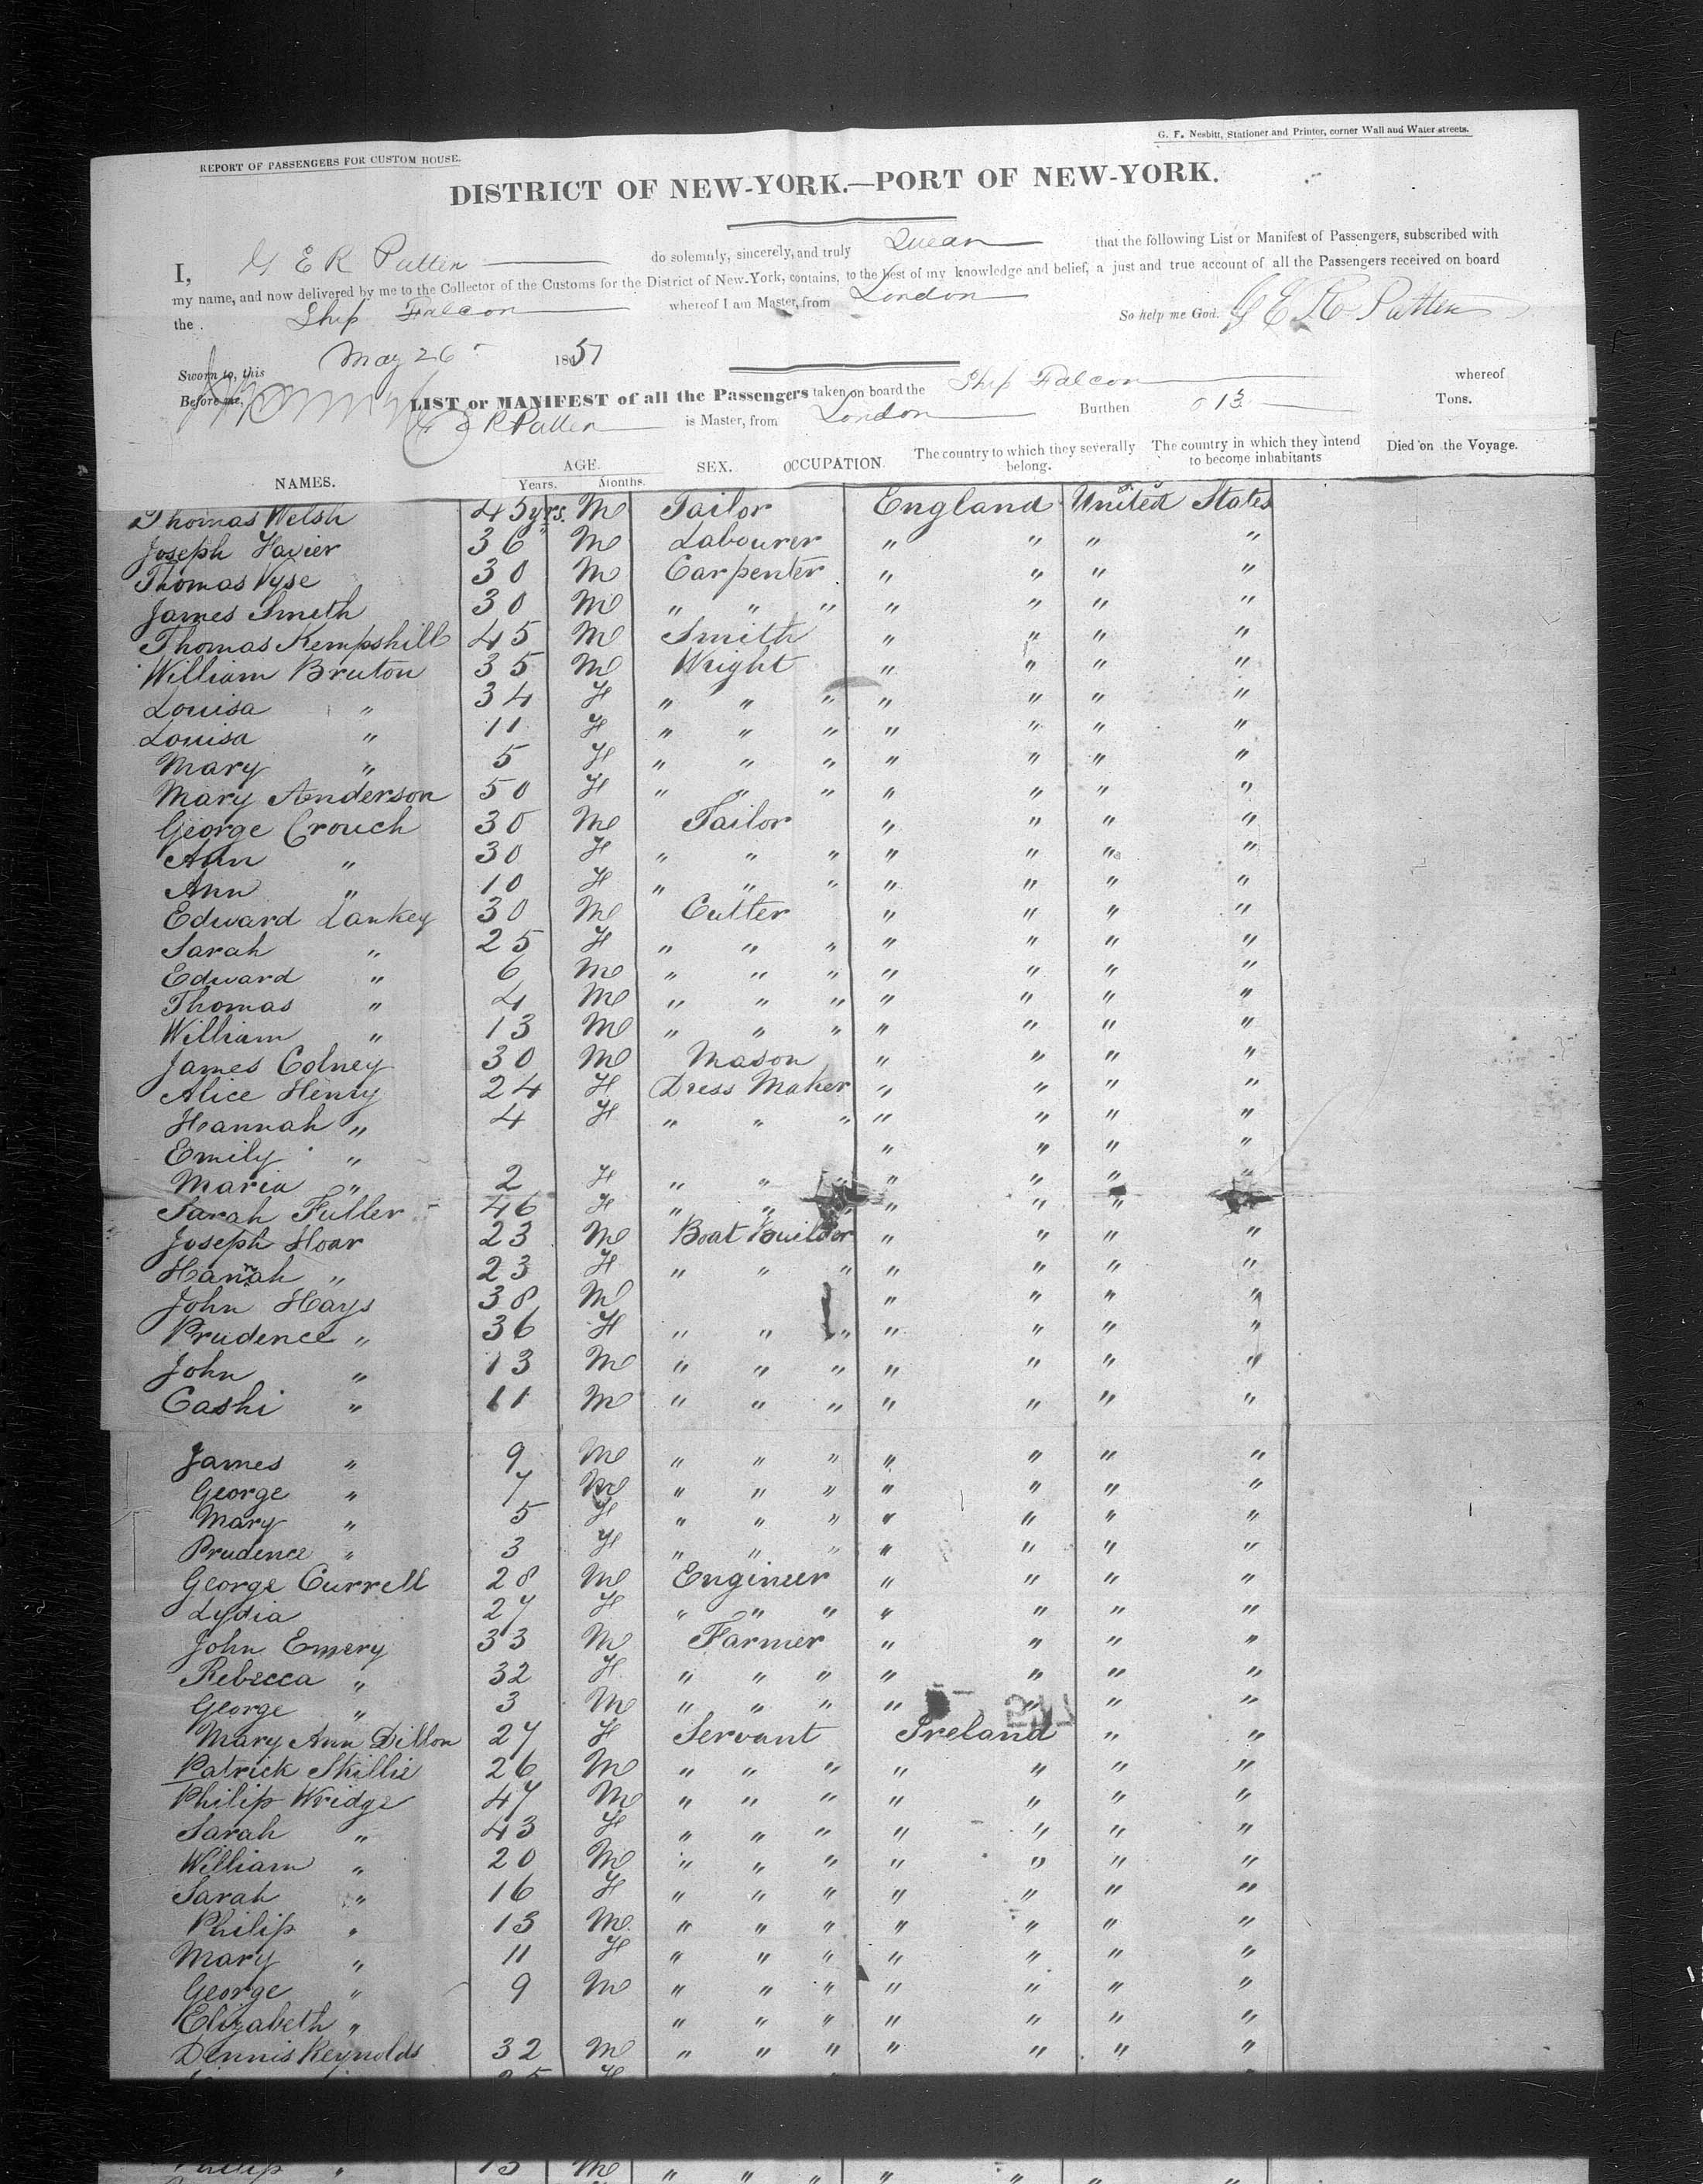 G. F. Nesbitt, Stationer and Printer, corner Wall and Water streets.
REPORT OF PASSENGERS FOR CUSTOM HOUSE.
DISTRICT OF NEW-YORK.—PORT OF NEW-YORK.
I, G E R Patten do solemnly, sincerely, and truly Swear that the following List or Manifest of Passengers, subscribed with
my name, and now delivered by me to the Collector of the Customs for the District of New-York, contains, to the best of my knowledge and belief, a just and true account of all the Passengers received on board
the Ship Falcon whereof I am Master, from London
So help me God. G E R Patten
Sworn to, this May 26 1851
Before me,
LIST or MANIFEST of all the Passengers taken on board the Ship Falcon whereof
G E R Patten is Master, from London Burthen 813 Tons.
NAMES. AGE. Years. Months. SEX. OCCUPATION. The country to which they severally belong. The country in which they intend to become inhabitants Died on the Voyage.
Thomas Welsh 45 yrs. M Tailor England United States
Joseph 36 " M Labourer " " " "
Thomas Vyse 30 M Carpenter " " " "
James Smeth 30 M " " " " " " "
Thomas Kempshill 45 M Smith " " " "
William Bruton 35 M Wright " " " "
Louisa " 34 F " " " " " " "
Louisa " 11 F " " " " " " "
Mary " 5 F " " " " " " "
Mary Anderson 50 F " " " " " " "
George Crouch 30 M Tailor " " " "
Ann " 30 F " " " " " " "
Ann " 10 F " " " " " " "
Edward Lankey 30 M Cutter " " " "
Sarah " 25 F " " " " " " "
Edward " 6 M " " " " " " "
Thomas " 4 M " " " " " " "
William " 13 M " " " " " " "
James Colney 30 M Mason " " " "
Alice Henry 24 F Dress Maker " " " "
Hannah " 4 F " " " " " " "
Emily " " " " "
Maria " 2 F " " " " " "
Sarah Fuller 46 F " " " " "
Joseph Hoar 23 M Boat Builder " " " "
Hannah " 23 F " " " " " " "
John Hays 38 M " " " "
Prudence " 36 F " " " " " " "
John " 13 M " " " " " " "
Cashi " 11 M " " " " " " "
James " 9 M " " " " " " "
George " 7 M " " " " " " "
Mary " 5 F " " " " " " "
Prudence " 3 F " " " " " " "
George Currell 28 M Engineer " " " "
Lydia 27 F " " " " " " "
John Emery 33 M Farmer " " " "
Rebecca " 32 F " " " " " " "
George " 3 M " " " " " " "
Mary Ann Dillon 27 F Servant Ireland " "
Patrick Skillie 26 M " " " " " " "
Philip Wridge 47 M " " " " " " "
Sarah " 43 F " " " " " " "
William " 20 M " " " " " " "
Sarah " 16 F " " " " " " "
Philip " 13 M " " " " " " "
Mary " 11 F " " " " " " "
George " 9 M " " " " " " "
Elizabeth " " " " " " " "
Dennis Reynolds 32 M " " " " " " "
25 F
Philip " 13 M " " " " " " "